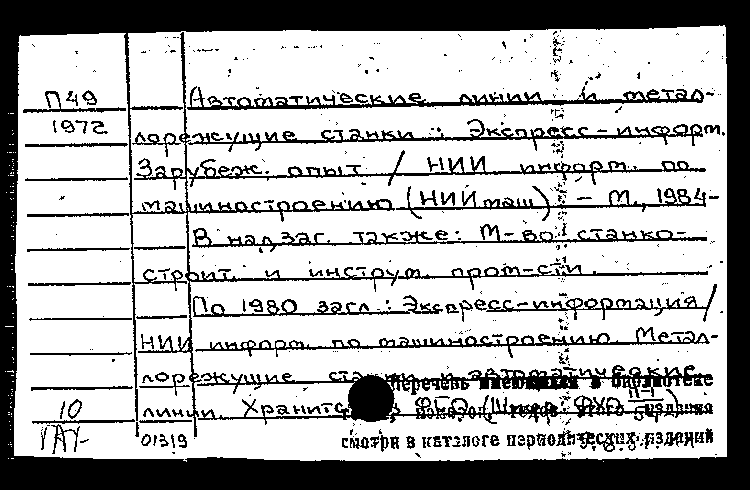 П49 Автоматические линии и метал-
1972 лорежущие станки : Экспресс-информ.
Зарубеж. опыт / НИИ информ. по
машиностроению (НИИмаш) – М., 1984-
В надзаг. также: М-во станко-
строит. и инструм. пром-сти.
По 1980 загл.: Экспресс-информация /
НИИ информ. по машиностроению. Метал-
лорежущие станки и автоматические
Перечень имеющихся в библиотеке
10 линии. Хранится в ФГО (Шифр ФХО П-1/54)
номеров, годов этого издания
01319 смотри в каталоге периодических изданий